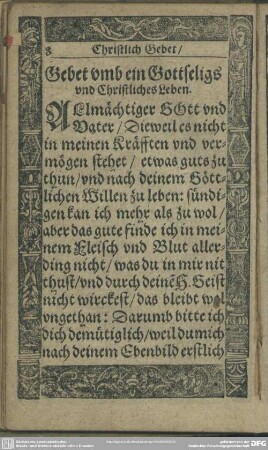 8 Christlich Gebet /
Gebet vmb ein Gottseligs
vnd Christliches Leben.
ALlmächtiger GOtt vnd
Vater / Dieweil es nicht
in meinen Kräfften vnd ver-
mögen stehet / etwas guts zu
thun / vnd nach deinem Gött-
lichen Willen zu leben: sündi-
gen kan ich mehr als zu wol /
aber das gute finde ich in mei-
nem Fleisch vnd Blut aller-
ding nicht / was du in mir nit
thust / vnd durch deinē H. Geist
nicht wirckest / das bleibt wol
vngethan: Darumb bitte ich
dich demütiglich / weil du mich
nach deinem Ebenbild erstlich